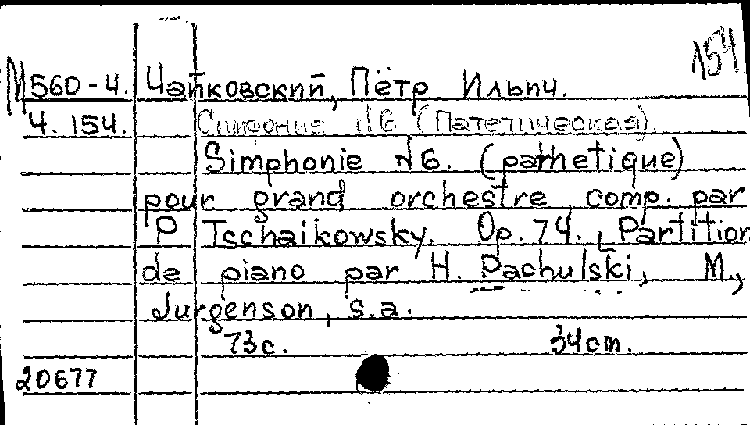 154
М560-4. Чайковский, Пётр Ильич.
Ч. 154. Симфония №6 (Патетическая)
Simphonie №6. (pathetique)
pour grand orchestre comp. par
P Tschaikowsky. Op. 74. Partition
de piano par H. Pachulski, M.,
Jurgenson, s.a.
73с. 34cm.
20677